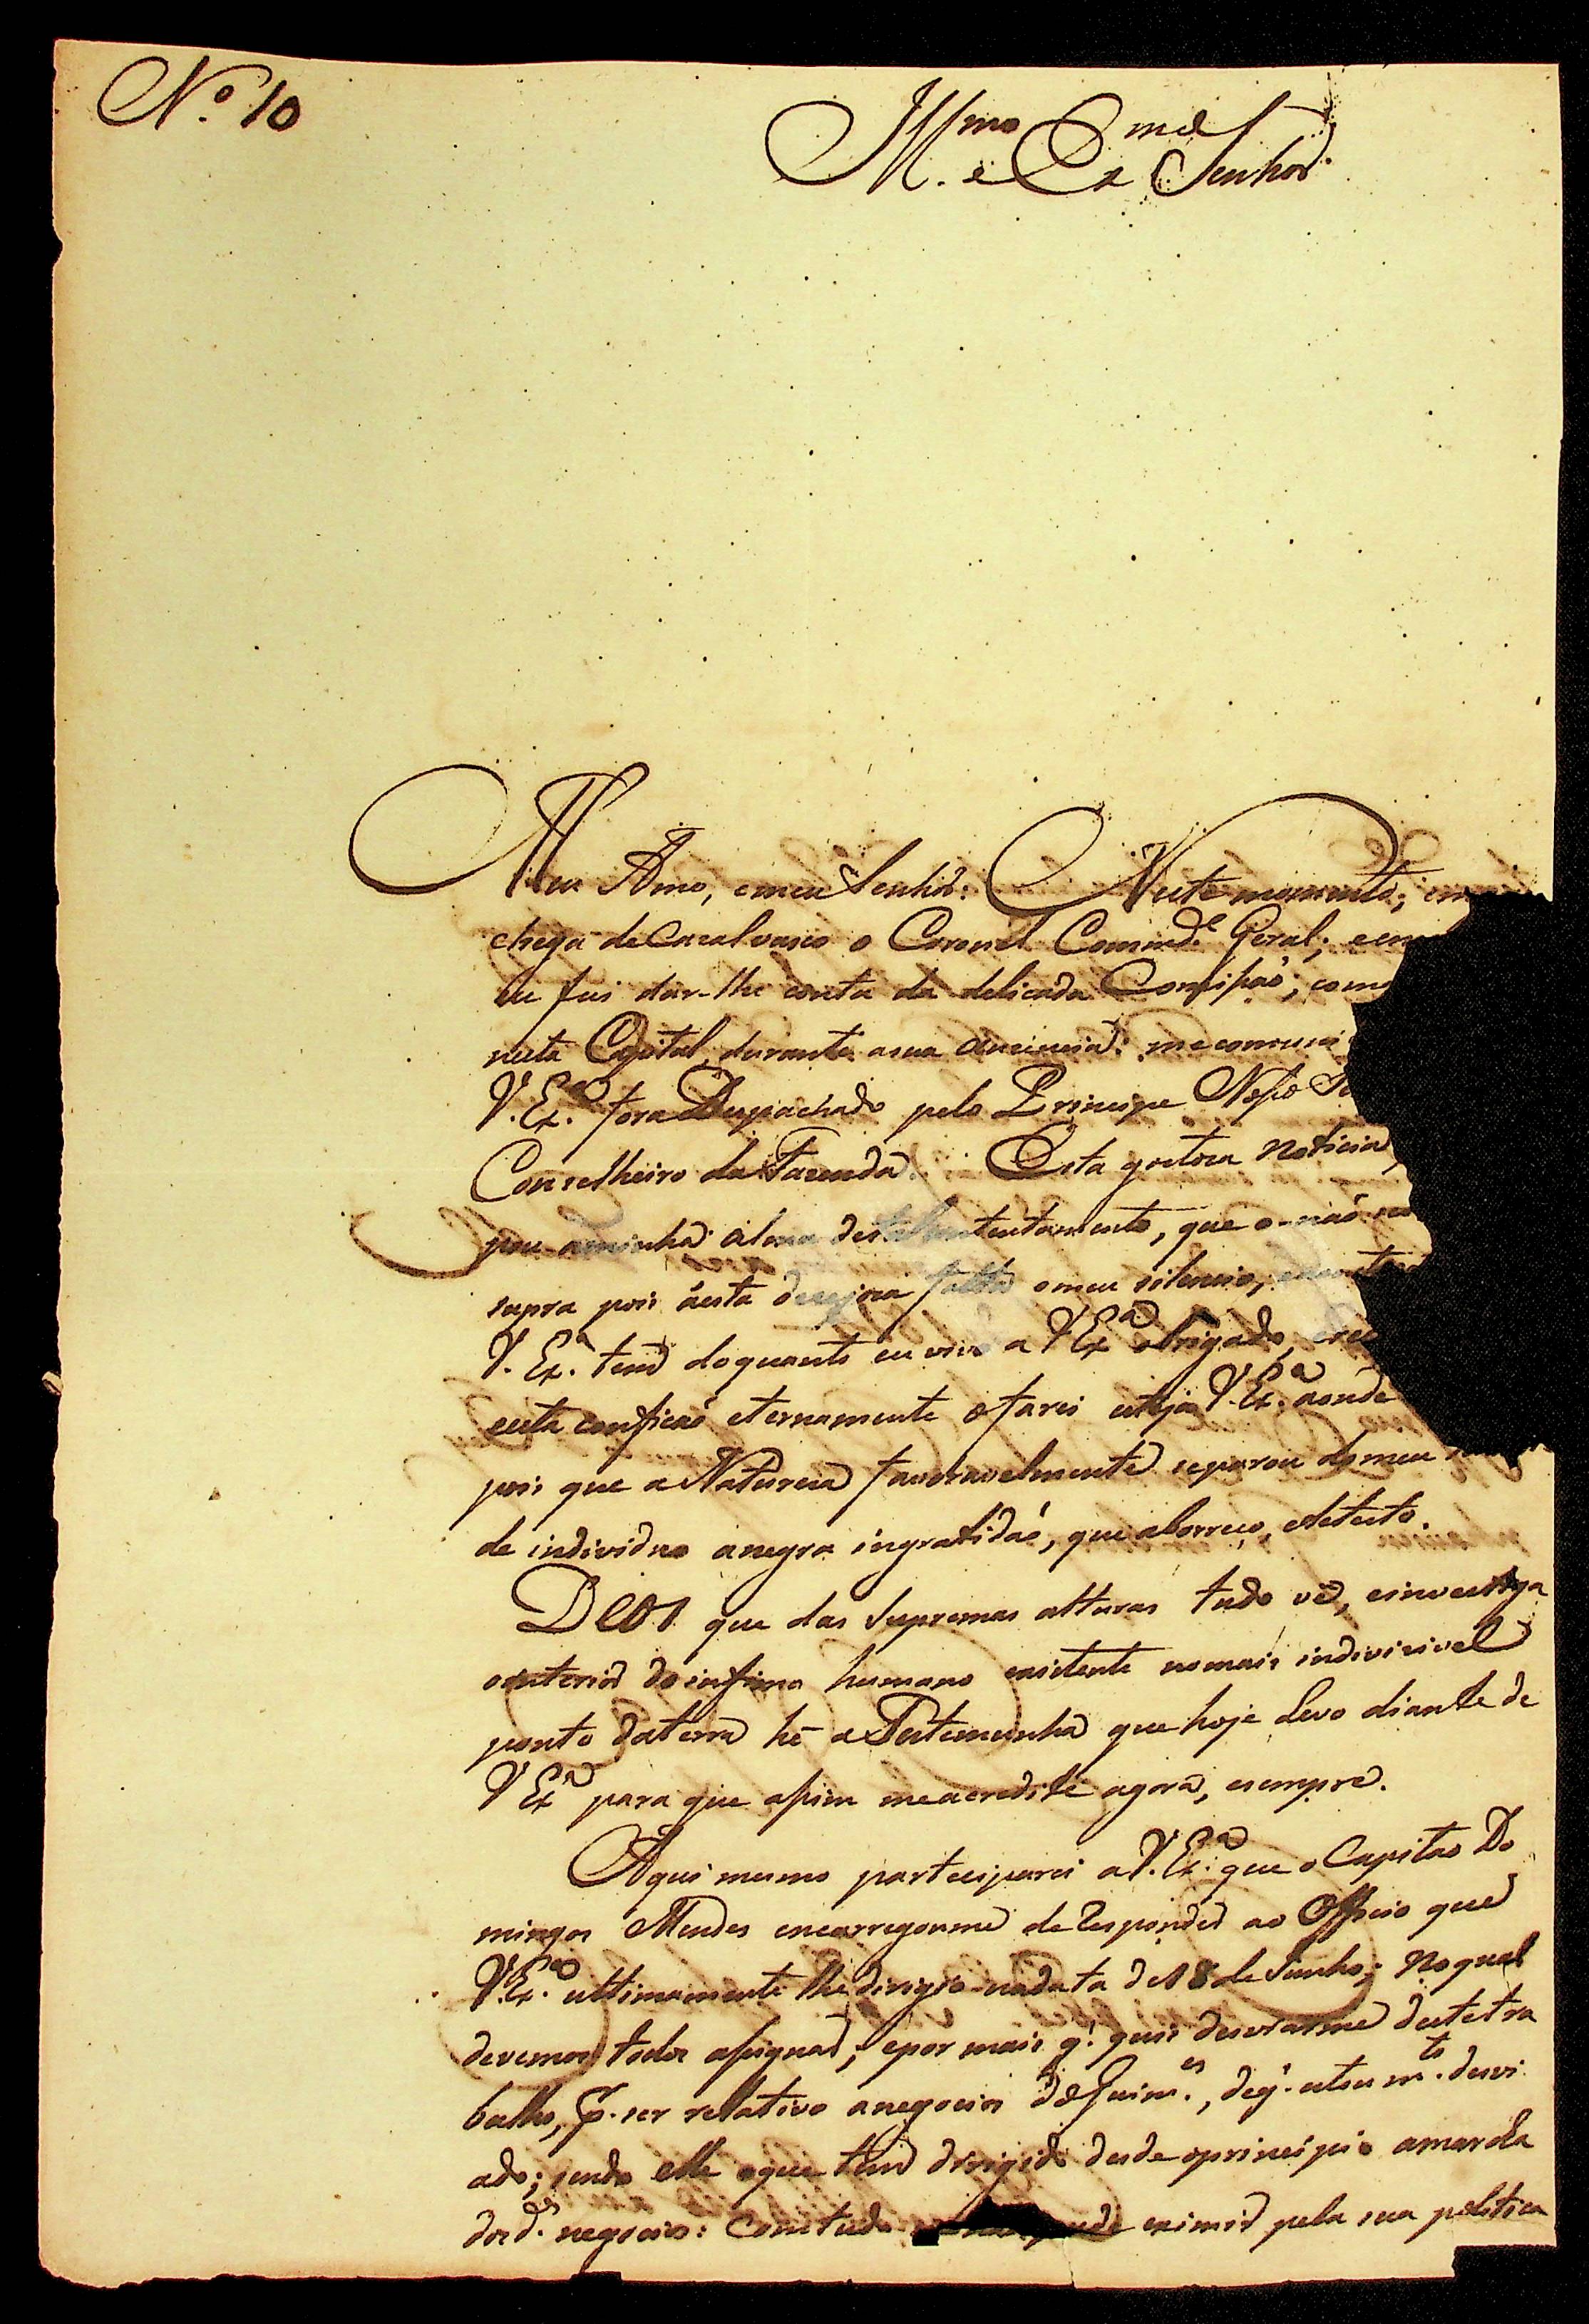 Nº 10
Illmo e Exmo Senhor
Meu Amo, e meu Senhor: Neste momento; em
chega de Cazalvasco o Coronel Commde Geral; e em
eu fui dar-lhe conta da delicada Comissaõ; como
nesta Capital, durante a sua auzencia: me comuni
V. Exa. fora Despachado pelo Principe Nosso Se
Conselheiro da Fazenda. Esta gostoza Noticia,
pou a minha alma de tal contentamento, que o-naõ
supra pois á esta falta o meu silencio,
V. Exa. tem do quanto eu vivo a V Exa obrigado,
esta confisaõ eternamente o farei esteja V. Exa. aonde
pois que a Natureza favoravelmente separou do meu
de individuo a negra ingratidaõ, que aborreço, e detesto.
DEOS que das Supremas alturas tudo vê, e investiga
o interior do infimo humano existente no mais indivisivel
ponto da terra hé a Testemunha que hoje Levo diante de
V Exa para que assim me acredite agora, e sempre.
Aqui mesmo participarei a V. Exa. que o Capitao Do
mingos Mendes encarregoume de Responder ao Officio que
V. Exa. ultimamente lhe dirigio na data de 18 de Junho; No qual
devemos todos assignar; e por mais q. quis desviarme deste tra
balho, p. ser relativo a negocios de , de q. estou mto. desvi
ado; sendo elle o que tem dirigido desde o principio a marcha
dos ds. negocios: Comtudo pude eximir pela sua politica